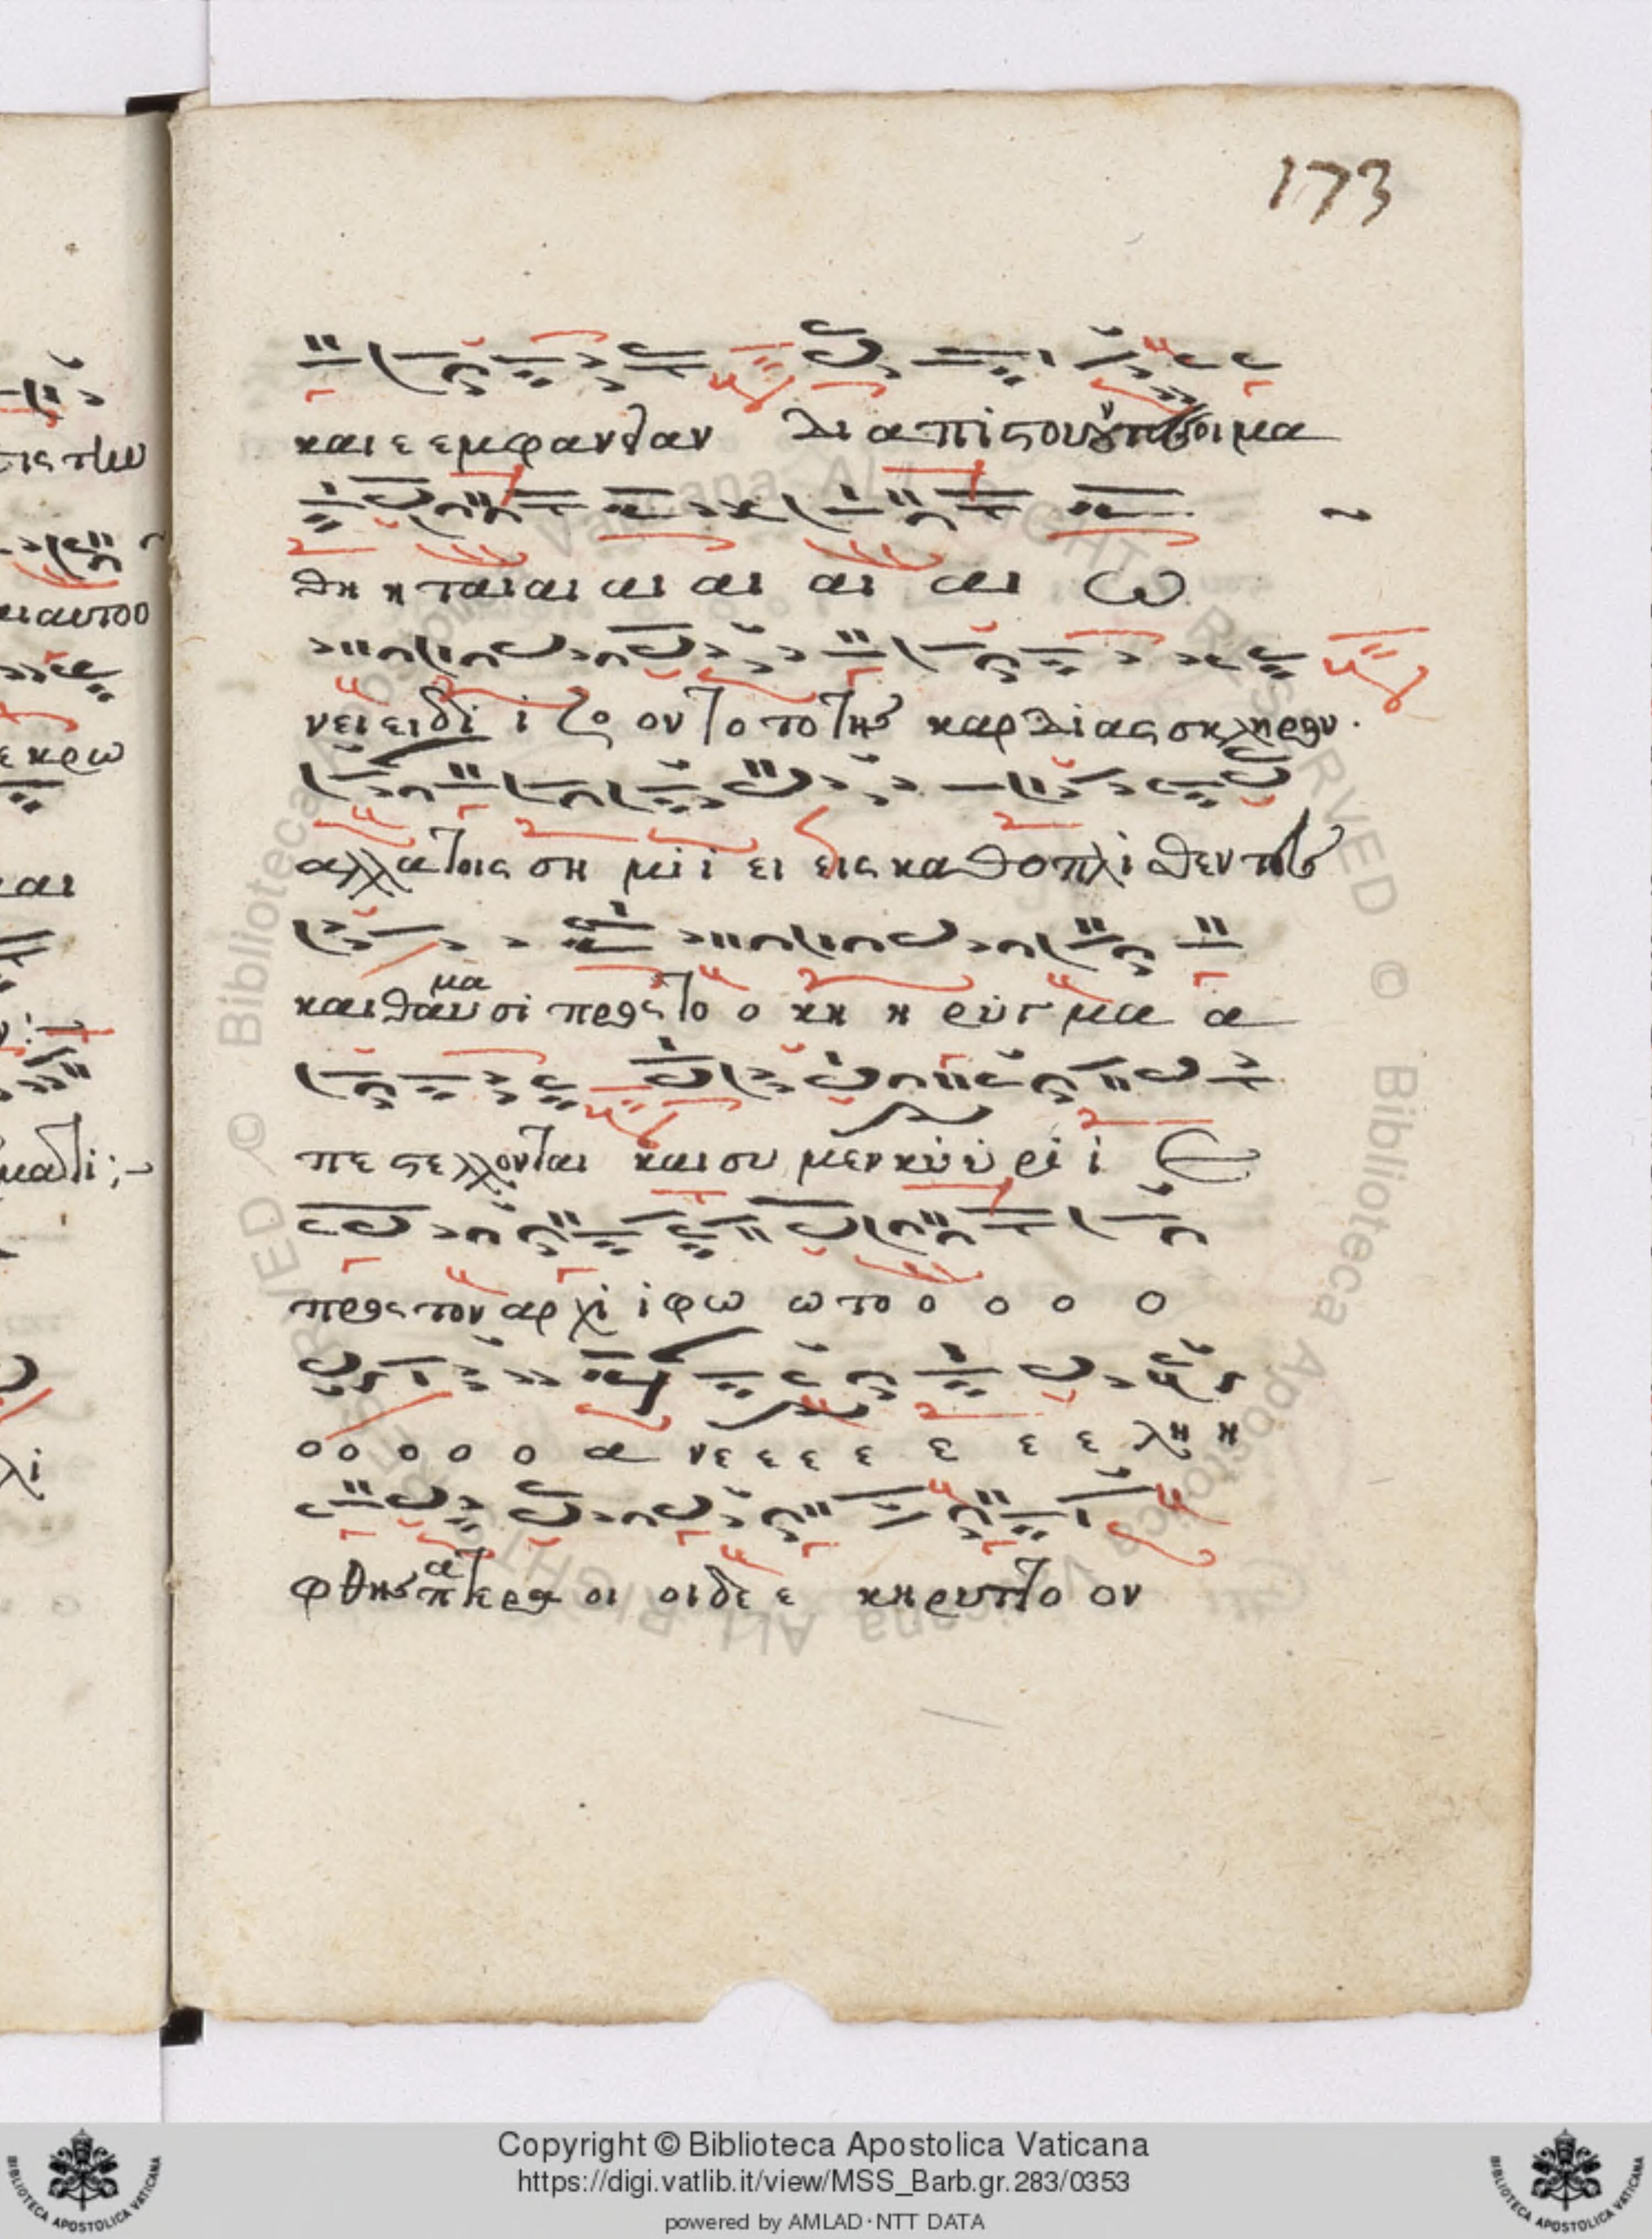 173
και ε εμφανσαν δι απιστουντων οι μα
θη η ται αι αι αι αι αι ω
νει ει δι ι ζο ον το το της καρδιας σκληρον.
αλλα τοις ση μι ι ει εις καθοπλι θεν τες
και θαυμασι προς το ο κη η ρυγ μα α
πε στελλονται και συ μεν κυ υ ρι ι ε
προς τον αρ χι ι φω ω το ο ο ο ο
ο ο ο ο ο α νε ε ε ε ε ε ε λη η
φθης πατερα οι οι δε ε κη ρυτ το ον
Copyright © Biblioteca Apostolica Vaticana
https://digi.vatlib.it/view/MSS_Barb.gr.283/0353
powered by AMLAD · NTT DATA